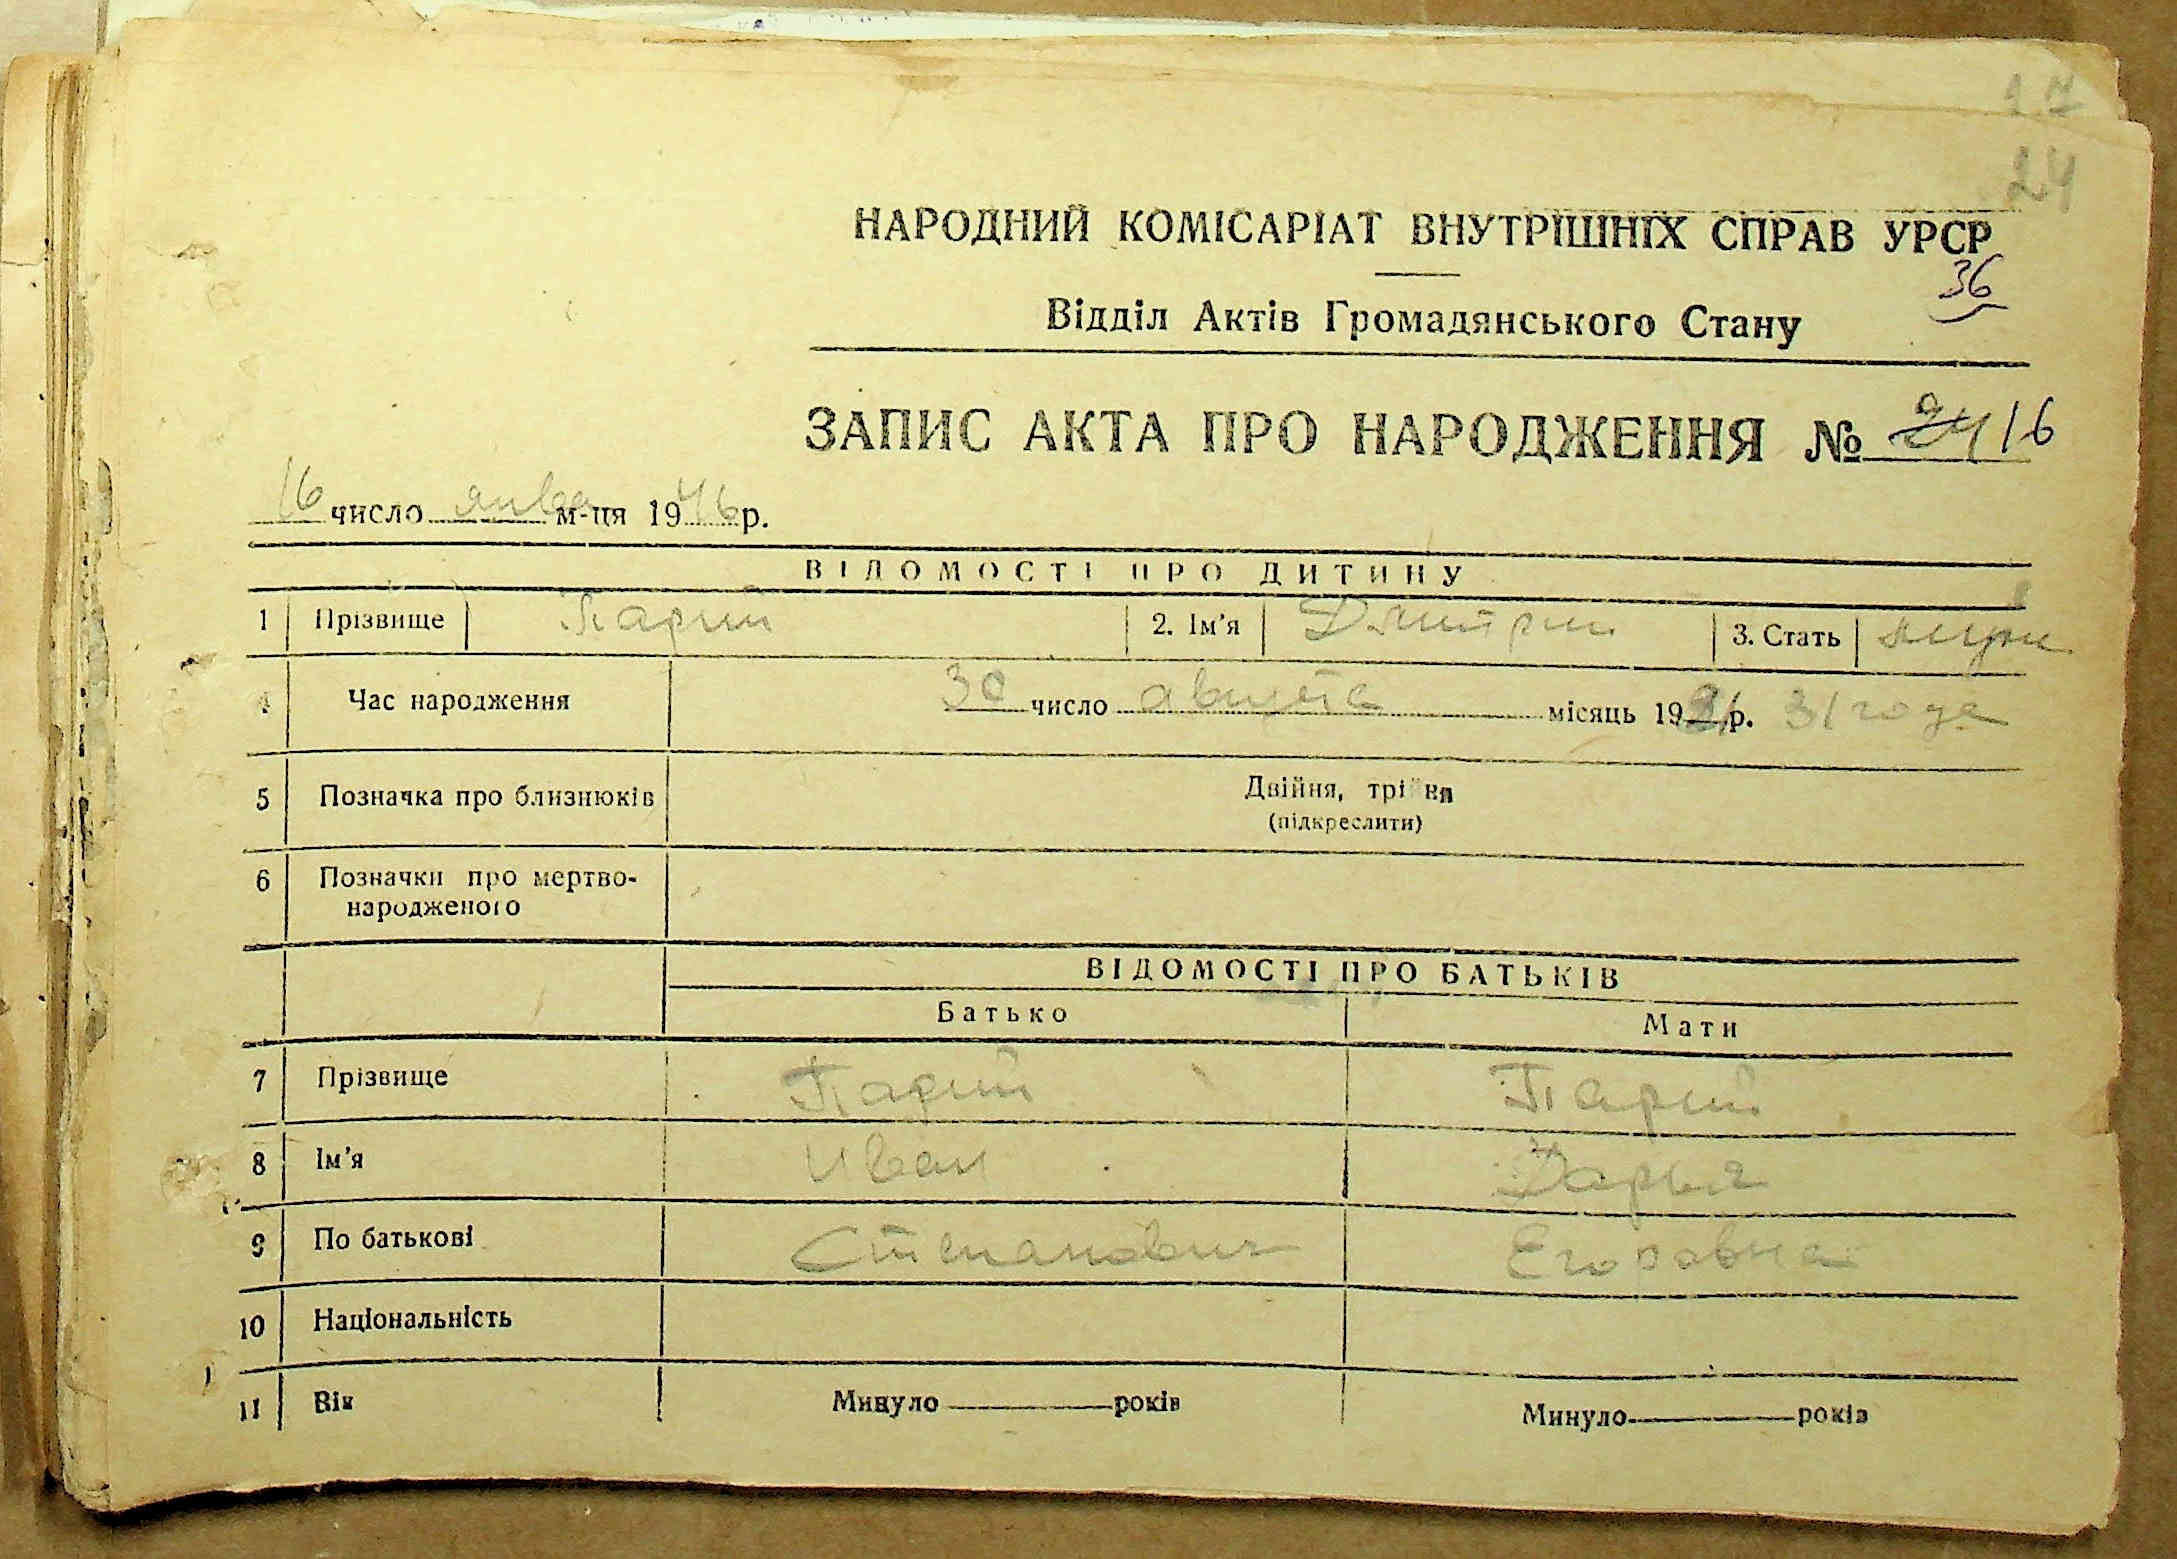 17
24
НАРОДНИЙ КОМІСАРІАТ ВНУТРІШНІХ СПРАВ УРСР
36
Відділ Актів Громадянського Стану
ЗАПИС АКТА ПРО НАРОДЖЕННЯ № 24 16
16 число янва м-ця 1946 р.
ВІДОМОСТІ ПРО ДИТИНУ
1 Прізвище Парий 2. Ім'я Дмитрий 3. Стать муж
4 Час народження 30 число августа місяць 1931 р. 31 года
5 Позначка про близнюків Двійня, трійня
(підкреслити)
6 Позначки про мертво-
народженого
ВІДОМОСТІ ПРО БАТЬКІВ
Батько Мати
7 Прізвище Парий Парий
8 Ім'я Иван Дарья
9 По батькові Степанович Егоровна
10 Національність
11 Вік Минуло років Минуло років